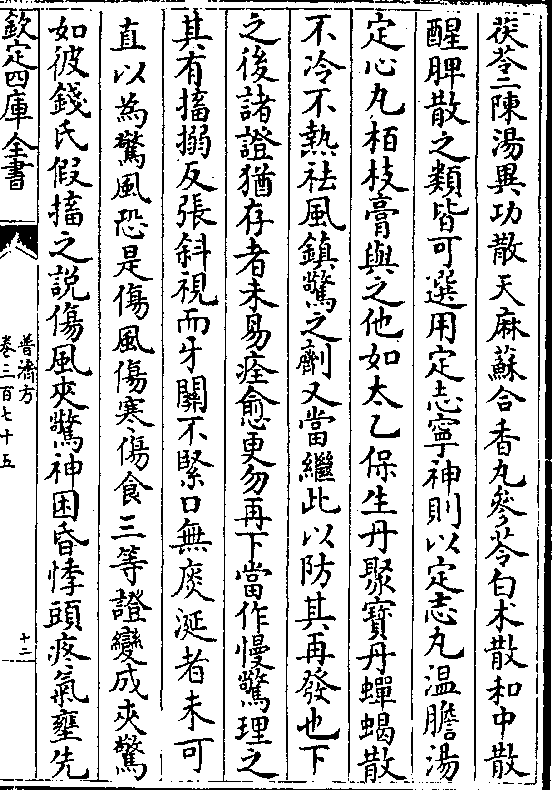 茯苓二陳湯異功散天麻蘇合香丸參苓白术散和中散
醒脾散之類皆可選用定志寧神則以定志丸温膽湯
定心丸栢枝膏與之他如太乙保生丹聚寶丹蟬蝎散
不冷不熱袪風鎮驚之劑又當繼此以防其再發也下
之後諸證猶存者未易痊愈更勿再下當作慢驚理之
其有搐搦反張斜視而牙關不緊口無痰涎者未可
直以為驚風恐是傷風傷寒傷食三等證變成夾驚
如彼錢氏假搐之説傷風夾驚神困昏悸頭疼氣壅先
欽定四庫全書
普濟方
卷三百七十五
十二